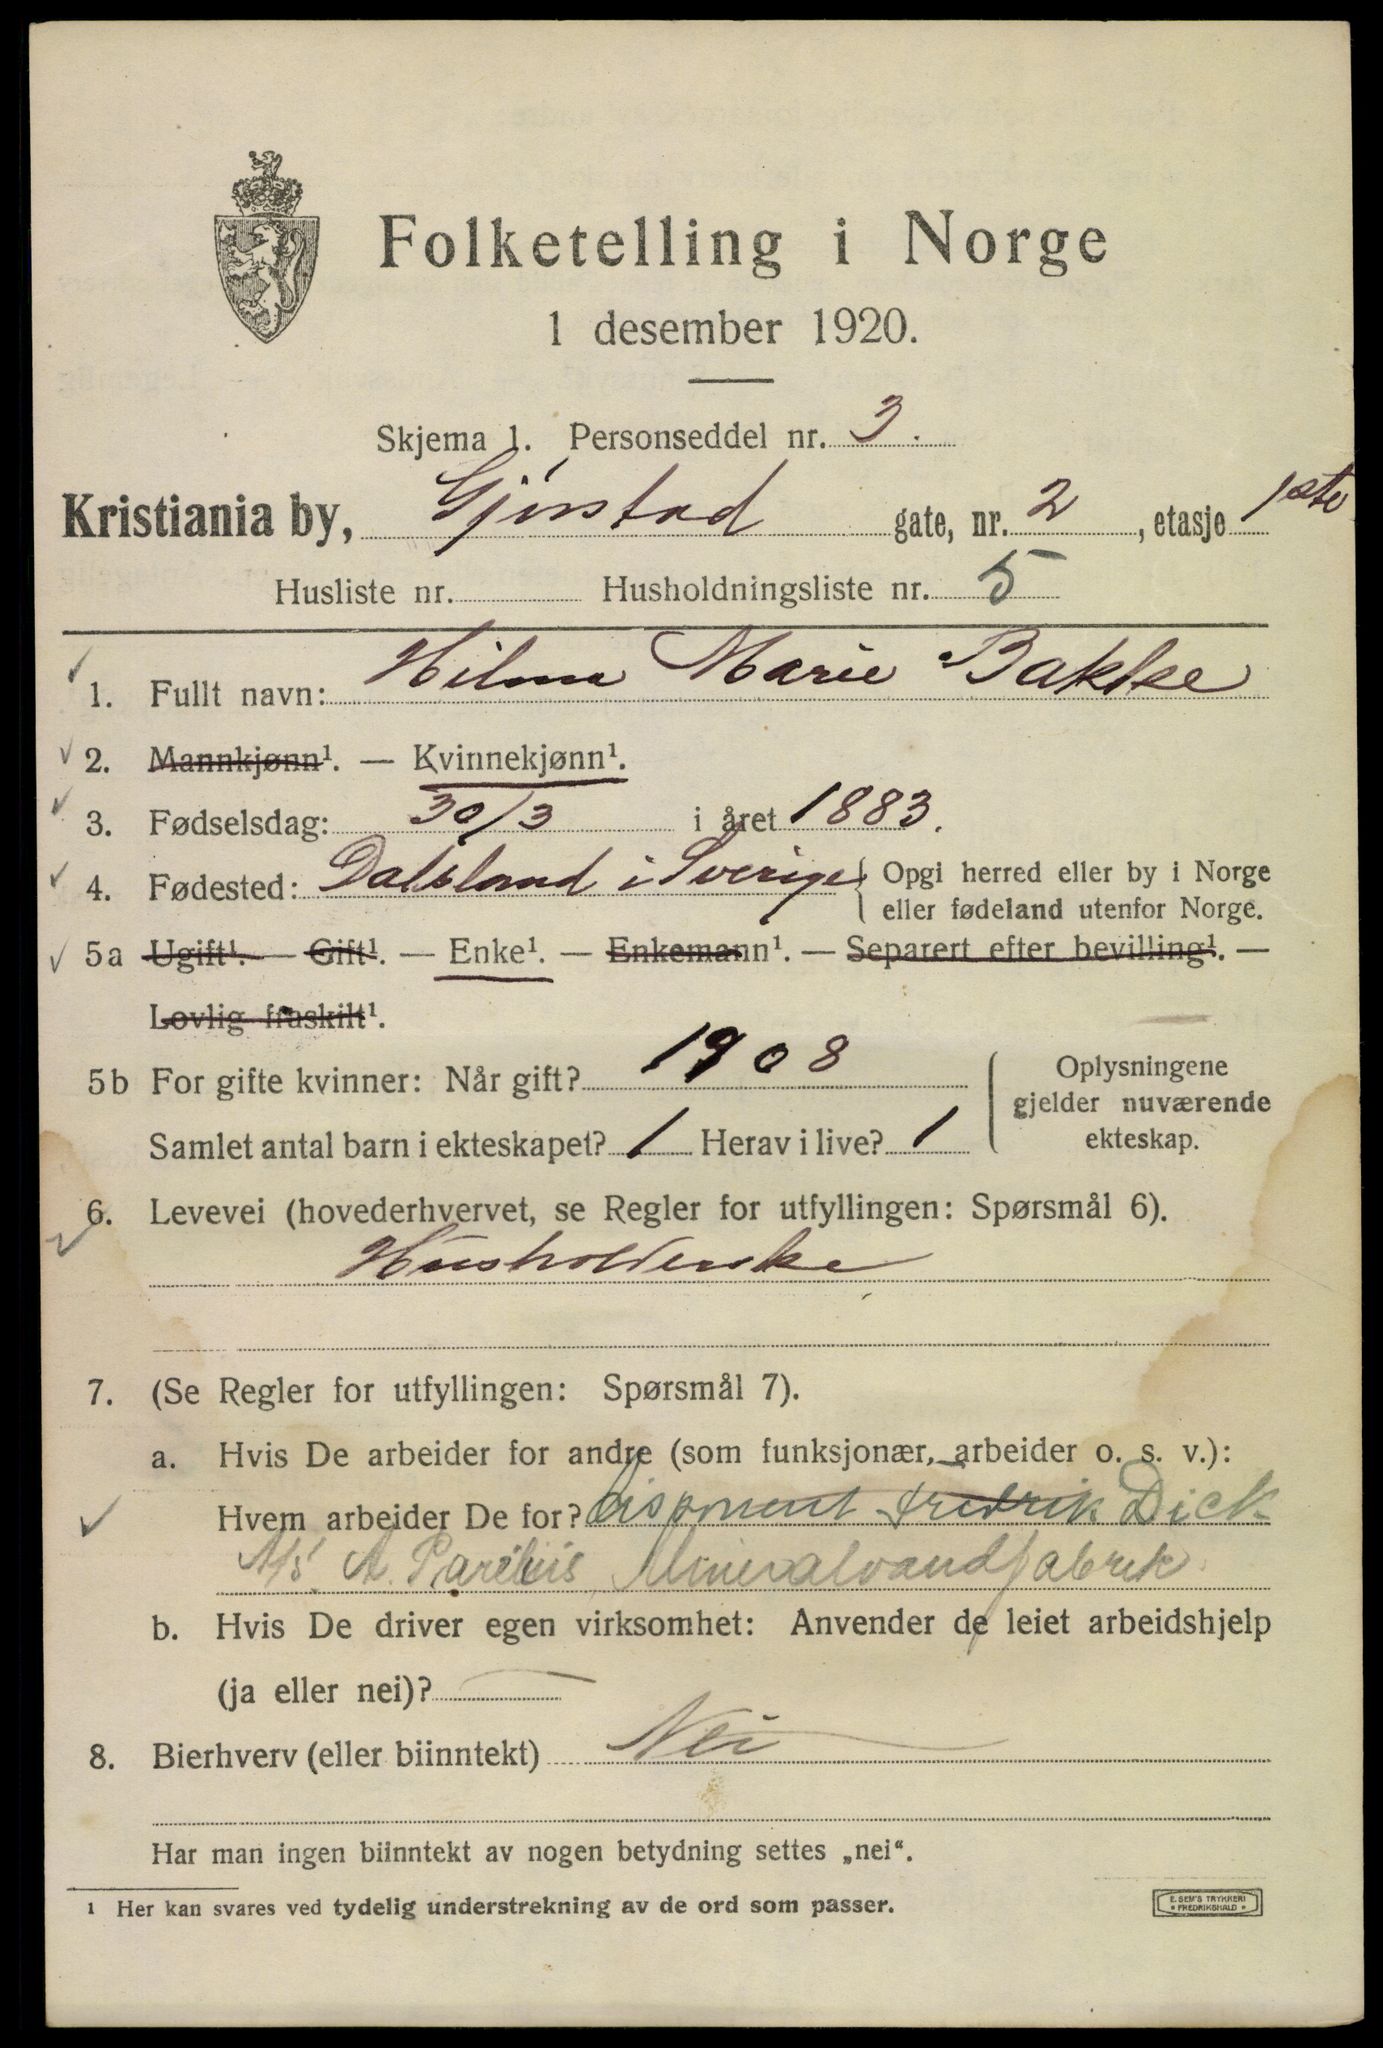 Folketelling i Norge
1 desember 1920.
Skjema 1. Personseddel nr. 3.
Kristiania by, Gjerstad gate, nr. 2, etasje 1ste
Husliste nr. Husholdningsliste nr. 5
1. Fullt navn: Hilma Marie Bakke
2. Mannkjønn¹. — Kvinnekjønn¹.
3. Fødselsdag: 30/3 i året 1883.
4. Fødested: Dalsland i Sverige { Opgi herred eller by i Norge
eller fødeland utenfor Norge.
5a Ugift¹. — Gift¹. — Enke¹. — Enkemann¹. — Separert efter bevilling¹. —
Lovlig fraskilt¹.
5b For gifte kvinner: Når gift? 1908
Samlet antal barn i ekteskapet? 1 Herav i live? 1
Oplysningene
gjelder nuværende
ekteskap.
6. Levevei (hovederhvervet, se Regler for utfyllingen: Spørsmål 6).
Husholderske
7. (Se Regler for utfyllingen: Spørsmål 7).
a. Hvis De arbeider for andre (som funksjonær, arbeider o. s. v.):
Hvem arbeider De for? Disponent Fredrik Dick
A/S. A. Parelius Mineralvandfabrik
b. Hvis De driver egen virksomhet: Anvender de leiet arbeidshjelp
(ja eller nei)? —
8. Bierhverv (eller biinntekt) Nei
Har man ingen biinntekt av nogen betydning settes „nei“.
¹ Her kan svares ved tydelig understrekning av de ord som passer.
E. SEM'S TRYKKERI
* FREDRIKSHALD *